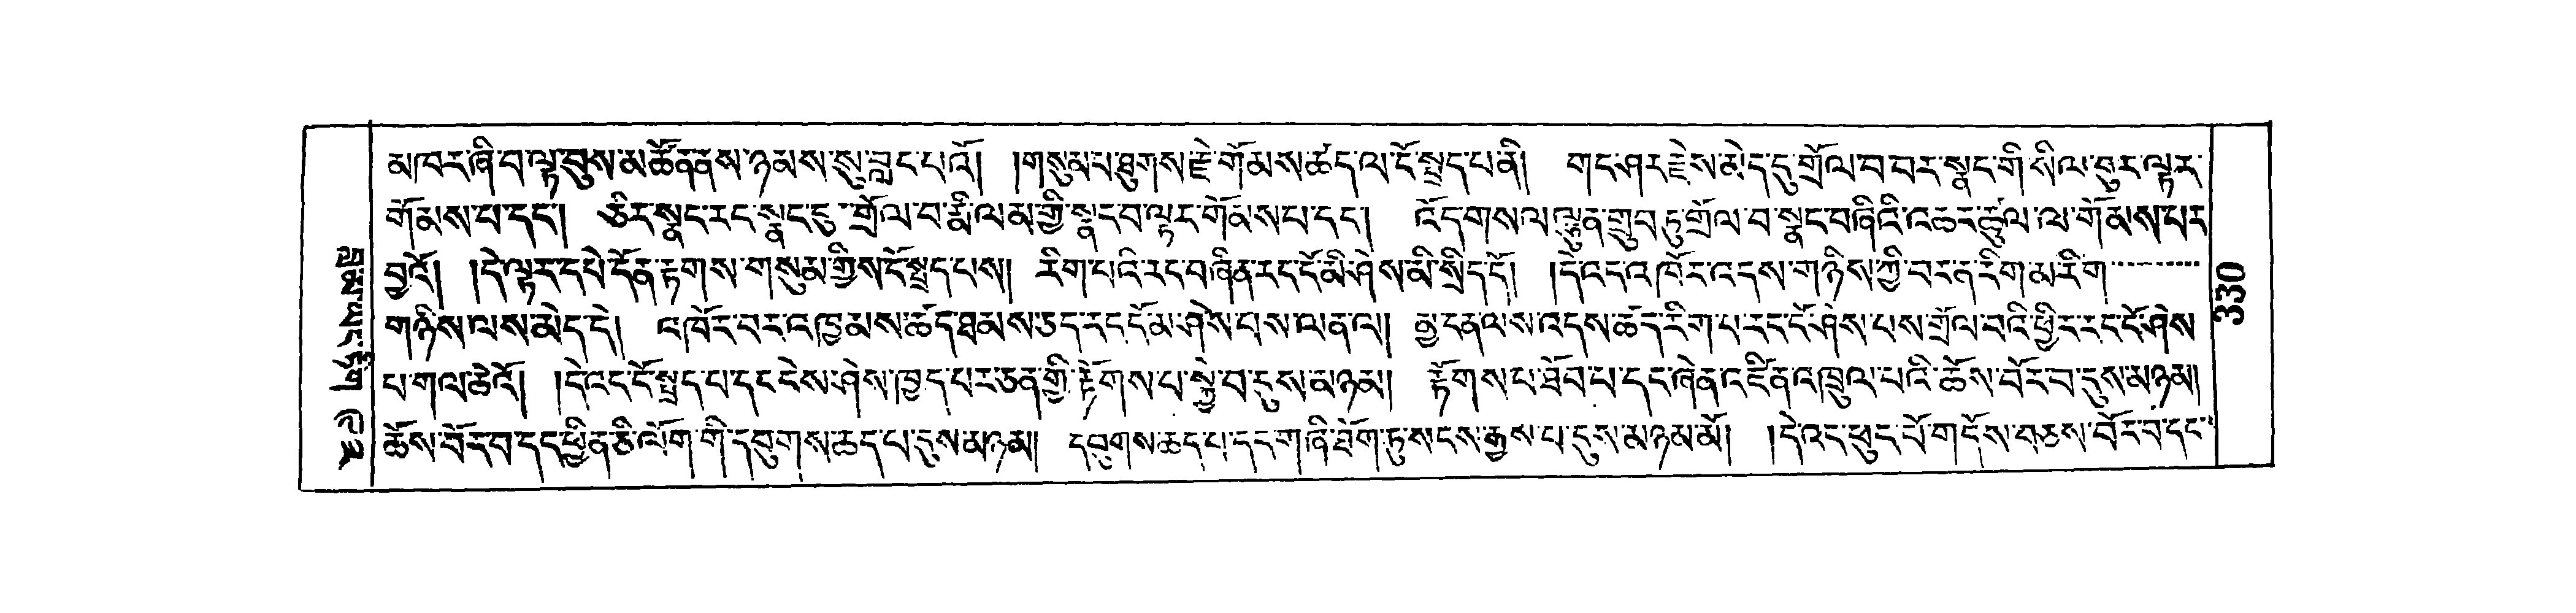 མཁར་ཞི་བ་ལྟ་བུས་མཚོན་ནས་ཉམས་སུ་བླང་པའོ། །གསུམ་པ་ཐུགས་རྗེ་གོམས་ཚད་ལ་ངོ་སྤྲད་པ་ནི། གང་ཤར་རྗེས་མེད་དུ་གྲོལ་བ་བར་སྣང་གི་སིལ་བུར་ལྟར་
གོམས་པ་དང་། ཅིར་སྣང་རང་སྣང་དུ་གྲོལ་བ་རྨི་ལམ་གྱི་སྣང་བ་ལྟར་གོམས་པ་དང་། འོད་གསལ་ལྷུན་གྲུབ་ཏུ་གྲོལ་བ་སྣང་བཞིའི་འཆར་ཚུལ་ལ་གོམས་པར
བྱའོ། །དེ་ལྟར་དཔེ་དོན་རྟགས་གསུམ་གྱིས་ངོ་སྤྲད་པས། རིག་པའི་རང་བཞིན་རང་ངོ་མི་ཤེས་མི་སྲིད་དོ། །དེ་འང་འཁོར་འདས་གཉིས་ཀྱི་བར་ན་རིག་མ་རིག
གཉིས་ལས་མེད་དེ། འཁོར་བར་འཁྱམས་ཚད་ཐམས་ཅད་རང་ངོ་མ་ཤེས་པས་ལན་ལ། མྱ་ངན་ལས་འདས་ཚད་རིག་པ་རང་ངོ་ཤེས་པས་གྲོལ་བའི་ཕྱིར་རང་ངོ་ཤེས
པ་གལ་ཆེའོ། །དེ་འང་ངོ་སྤྲད་པ་དང་ངེས་ཤེས་ཁྱད་པར་ཅན་གྱི་རྟོགས་པ་སྐྱེ་བ་དུས་མཉམ། རྟོགས་པ་ཐོབ་པ་དང་ཞེན་འཛིན་འཁྲུལ་པའི་ཆོས་བོར་བ་དུས་མཉམ།
ཆོས་བོར་བ་དང་ཕྱིན་ཅི་ལོག་གི་དབུགས་ཆད་པ་དུས་མཉམ། དབུགས་ཆད་པ་དང་གཞི་ཐོག་ཏུ་སངས་རྒྱས་པ་དུས་མཉམ་མོ། །དེ་འང་ཕུང་པོ་གདོས་བཅས་བོར་བ་དང་
༠༣༣